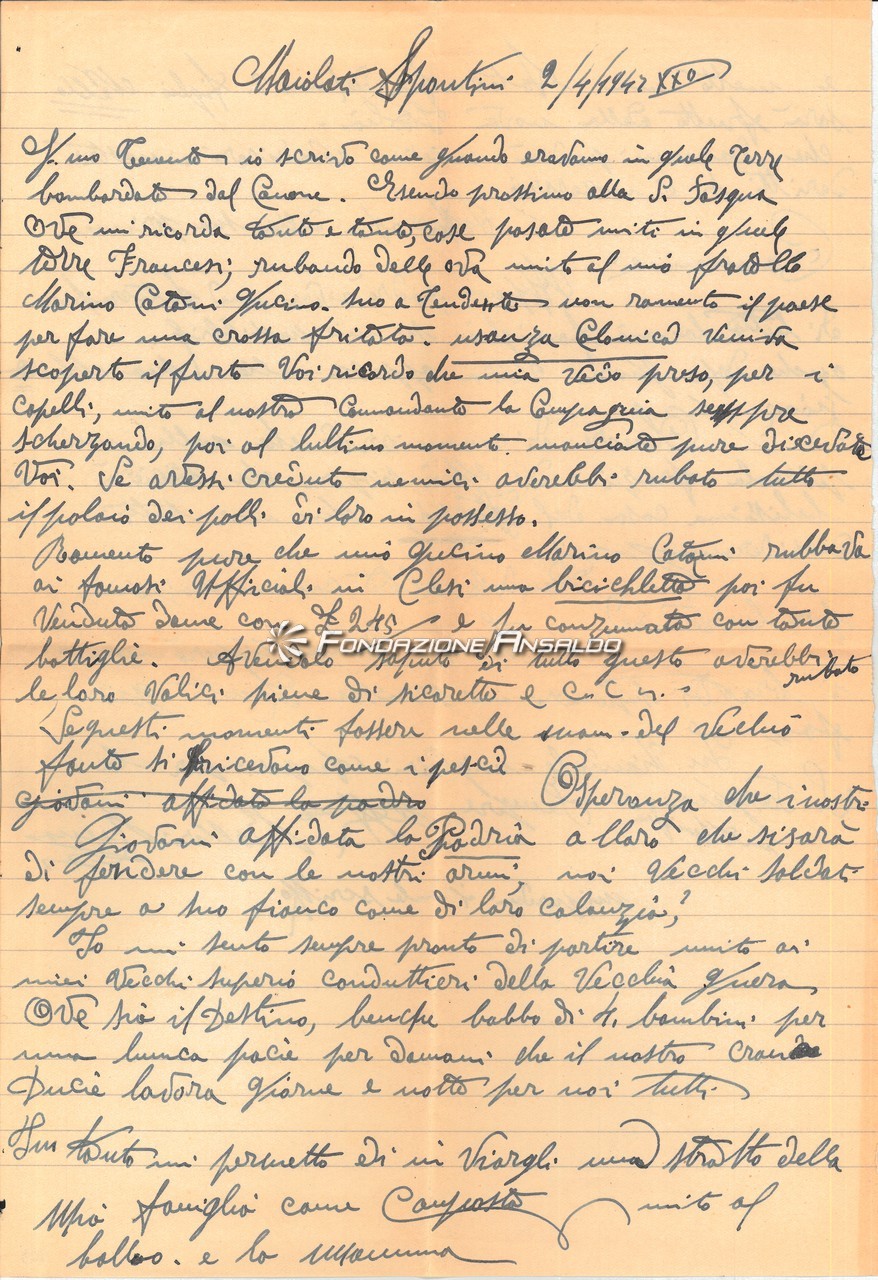 Maiolati Spontini 2/4/1942 XXo
Il.mo Tenente io scrivo come quando eravamo in quele Terre
bombardate dal Canone. Esendo prossimo alla S. Pasqua
Ove mi ricorda tante e tante, cose pasate uniti in quele
terre Francesi; rubando delle ova unito al mio fratello
Marino Catani Qucino. suo a Tendente non ramento il paese
per fare una crossa fritata. usanza Colonica Veniva
scoperto il furto Voi ricordo che mia Vedo preso, per i
capelli, unito al nostro Comandante la Compagnia sempre
scherzando, poi al lultimo momento. manciate pure dicevate
Voi. Se avessi creduto nemici averebbi rubato tutto
il polaio dei polli di loro in possesso.
Ramento pure che mio qucino Marino Catani rubbava
ai famosi Ufficiali in Clesi una bicichletta poi fu
Venduta dame con £ 245 e fu conzumata con tante
bottiglie. Avendolo saputo di tutto questo averebbi
rubato
le loro Valici piene di sicarette e
Se questi momenti fosseru nelle mani del Vechio
fante si fricevano come i pescie
giovani affidata la padro
Osperanza che i nostri
Giovani affidata la Padria allaro che sisarà
di fendere con le nostri armi, noi Vecchi soldati
sempre a suo fianco come di loro calanzia,
Io mi sento sempre pronto di partire unito ai
miei Vecchi superio conduttieri della Vecchia guera
Ove sia il Destino, benche babbo di 4. bambini per
una lunca pacie per domani che il nostro crande
Ducie lavora giorne e notte per noi tutti.
Im tanto mi permetto di in Viargli una stratto della
Mia famiglia come Composta unito al
babbo. e la Mamma
FONDAZIONE ANSALDO